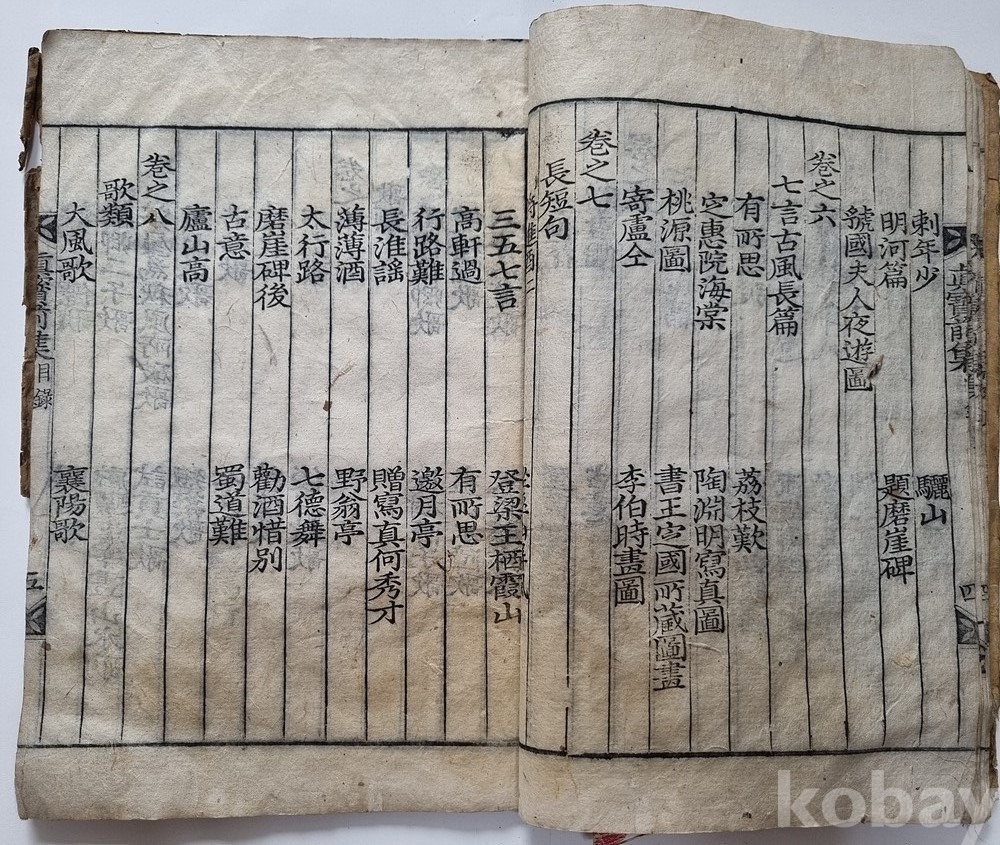 眞寶前集
四
刺年少 驪山
明河篇 題磨崖碑
虢國夫人夜遊圖
卷之六
七言古風長篇
有所思 荔枝歎
定惠院海棠 陶淵明寫真圖
桃源圖 書王定國所藏圖畫
寄盧仝 李伯時畫圖
卷之七
長短句
將進酒
三五七言 登梁王栖霞山
高軒過 有所思
行路難 邀月亭
長淮謠 贈寫真何秀才
薄薄酒 野翁亭
太行路 七德舞
磨崖碑後 勸酒惜別
古意 蜀道難
廬山高
卷之八
歌類
大風歌 襄陽歌
眞寶前集目錄
五
kobay